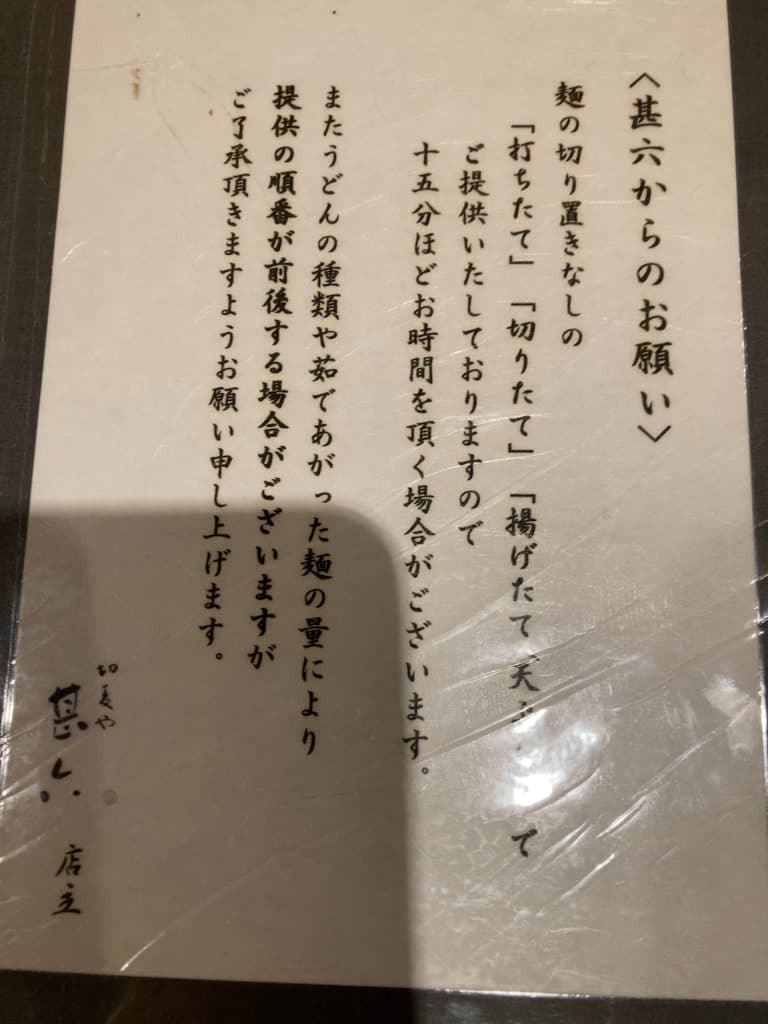 〈甚六からのお願い〉
麺の切り置きなしの
「打ちたて」「切りたて」「揚げたて天ぷ て
ご提供いたしておりますので
十五分ほどお時間を頂く場合がございます。
またうどんの種類や茹であがった麺の量により
提供の順番が前後する場合がございますが
ご了承頂きますようお願い申し上げます。
切麦や
甚六 店主